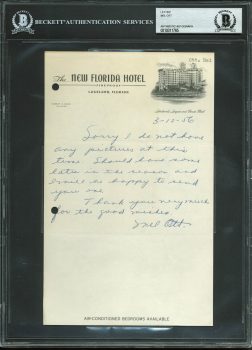 BECKETT AUTHENTICATION SERVICES
MEL OTT
BECKETT
Ott, Mel
The NEW FLORIDA HOTEL
FIREPROOF
LAKELAND, FLORIDA
3-12-56
Sorry I do not have
any pictures at this
time. Should have some
later in the season and
would be happy to send
you one.
Thank you very much
for the good wishes.
Mel Ott
AIR-CONDITIONED BEDROOMS AVAILABLE